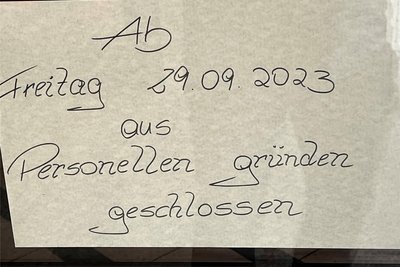 Ab
Freitag 29.09.2023
aus
Personellen gründen
geschlossen